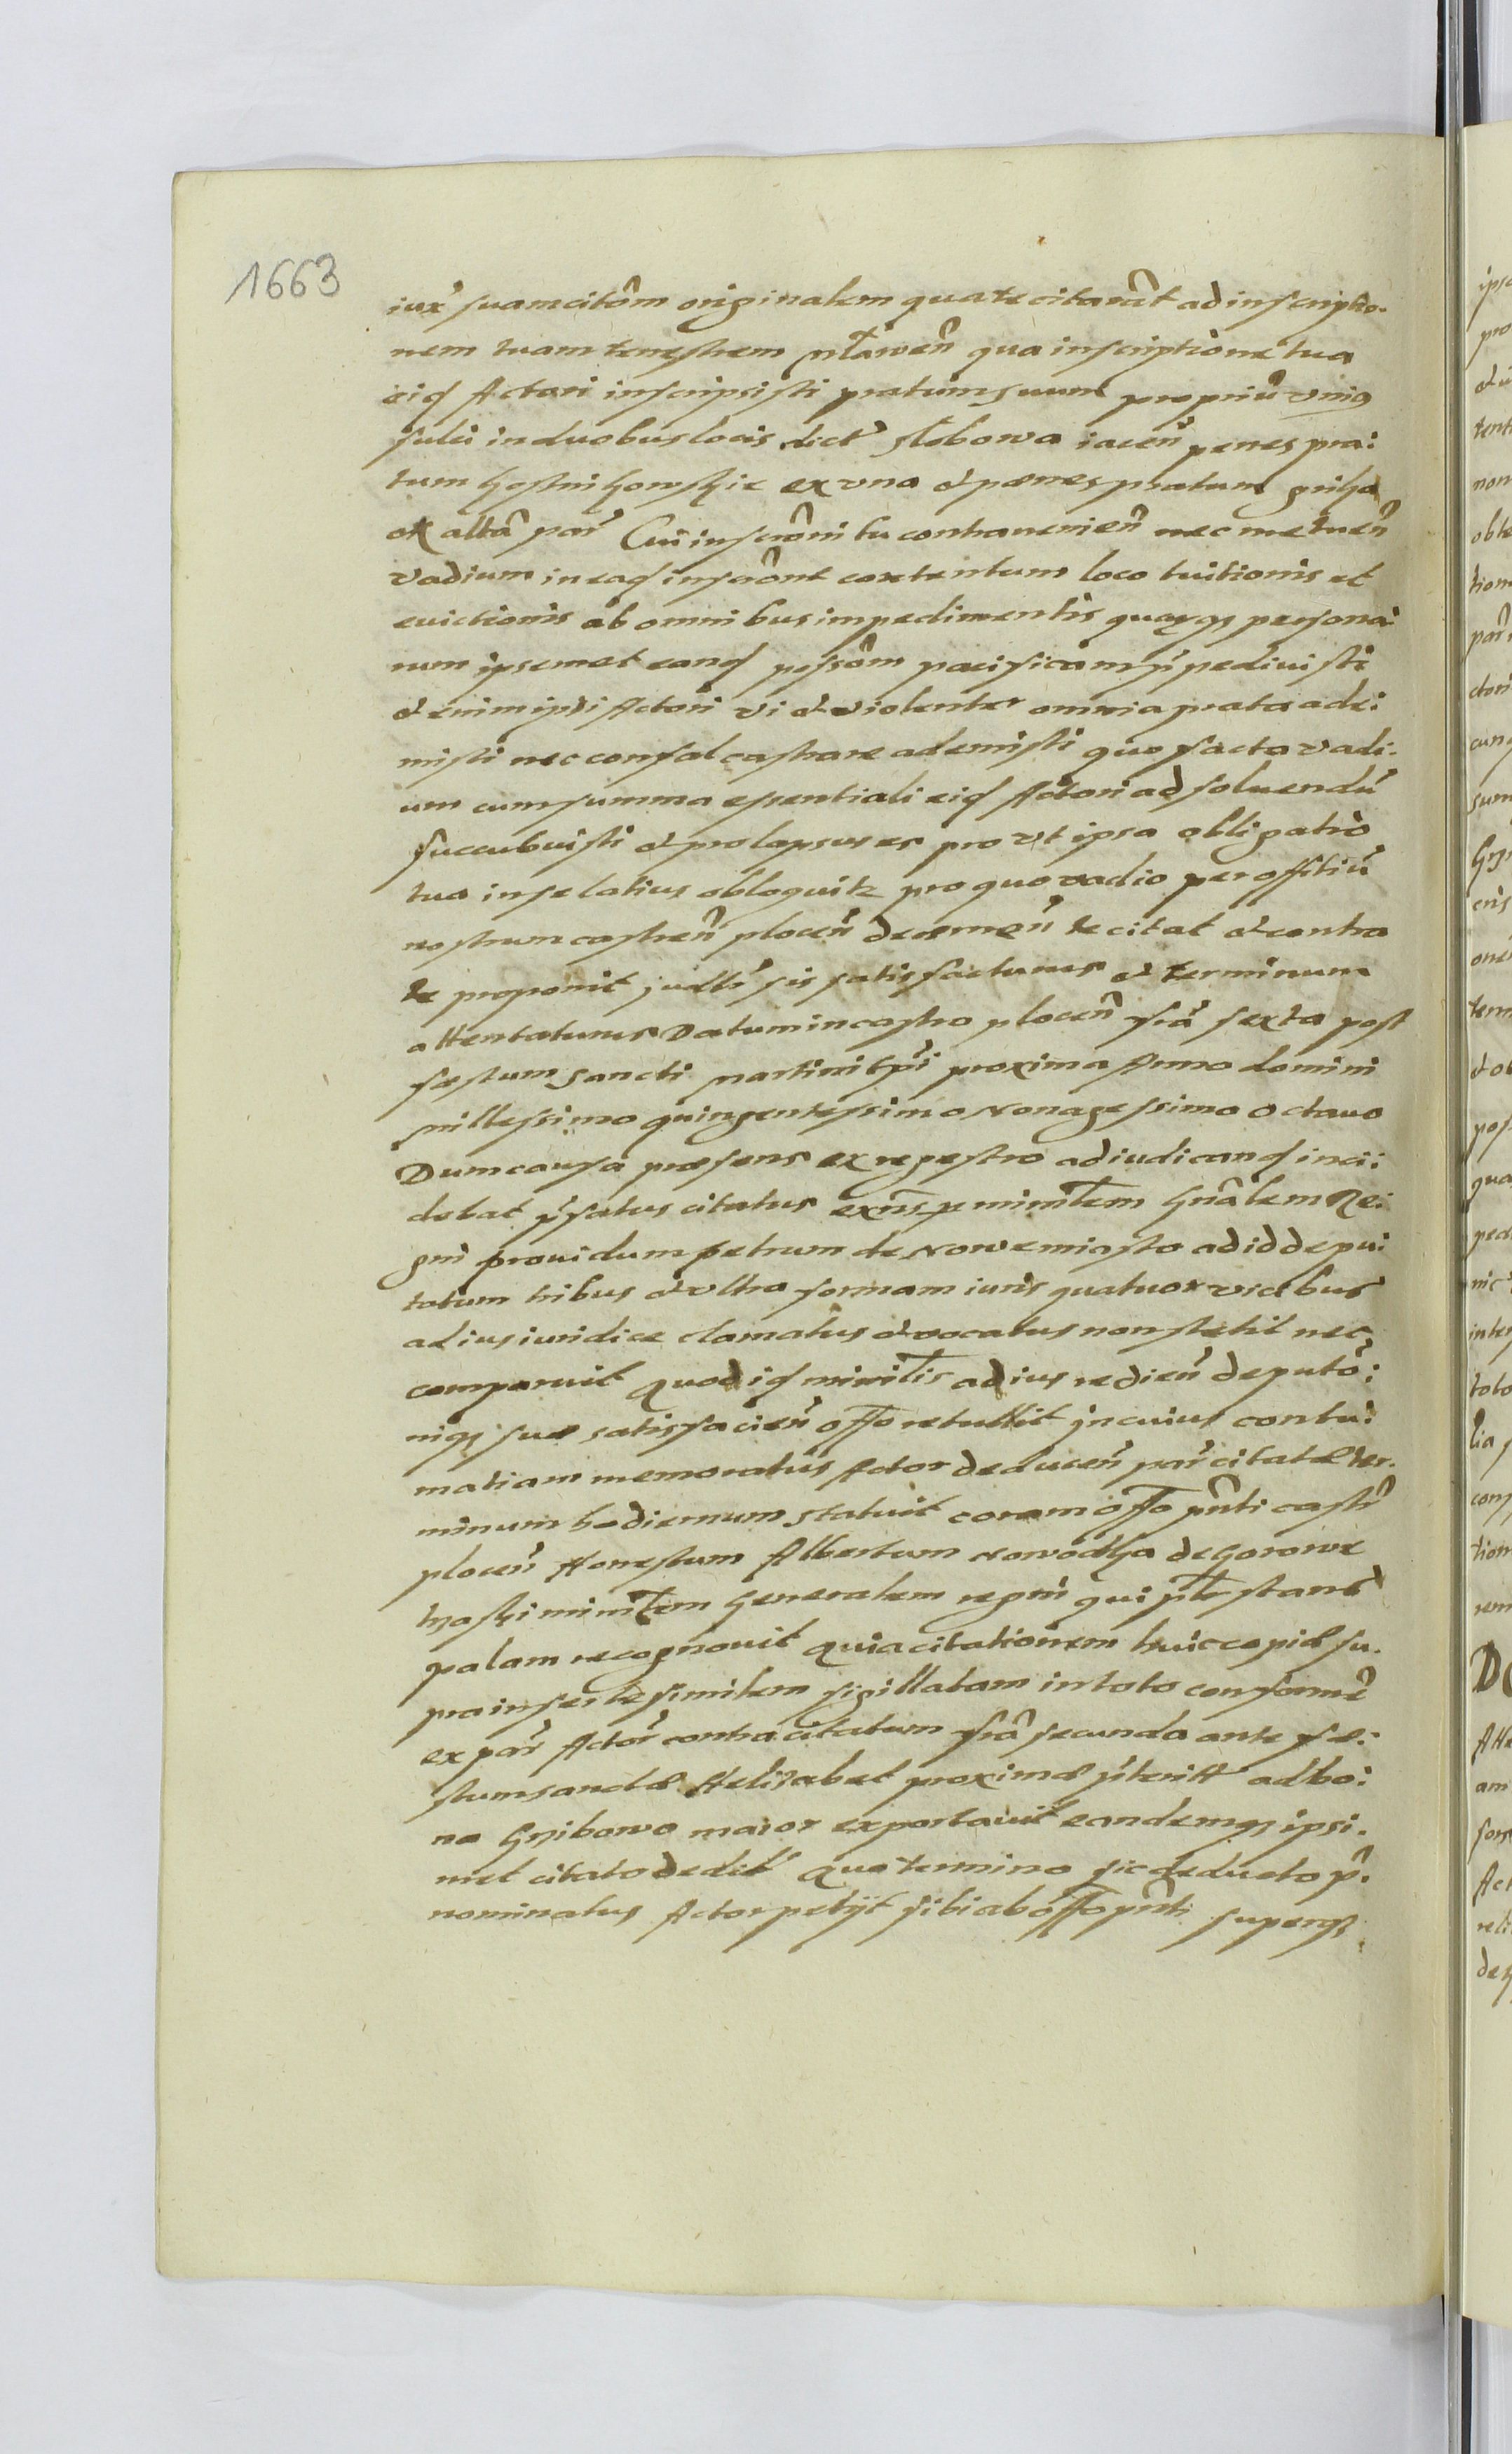 1663
iux̃ suam citõm originalem qua te citarũt ad inscriptio.
nem tuam terrestrem Mlawen̄ qua inscriptione tua
eid Actori inscripsisti pratum suum propriũ vnius
sulci in duobus locis dict̃ Slobowa iacen̄ penes pra:
tum ex vna et penes pratum
ex altã par̃ Cui inscrõni tu contravenien̄ nec metuen̄
vadium in ead inscrõne contentum loco tuitionis et
evictionis ab omnibus impedimentis quarũqz persona:
rum ipsemet eand possõm pacificam p̃pedivisti
et enim ipsi Actori vi et violenter omnia prata ade:
misti nec confalcastrare ademisti quo facto vadi.
um cum summa essentiali eid Actori ad soluendũ
succubuisti et prolapsus es pro vt ipsa obligatio
tua in se latius obloquitr pro quo vadio per offitiũ
nostrum castren̄ plocen̄ te citat et contra
te proponit sis satisfacturus et terminum
attentaturus Datum in castro plocen̄ fr̃a sexta post
festum Sancti Martini proxima Anno domini
millessimo quingentessimo Nonagessimo octauo
Dum causa præsens ex regestro adiudicand inci:
debat p̃fatus citatus exn̄s p minirlem Gnãlem Re:
gni prouidum petrum de Nowemiasto ad id depu:
tatum tribus et vltra formam iuris quatuor vicibus
ad ius iuridice clamatus et vocatus non stetit nec
comparuit Quod id minirlis ad ius redien̄ deputõ:
niqz suæ satisfacien̄ offo retullit in cuius contu:
matiam memoratus Actor deducen̄ par̃ citatæ ter.
minum hodiernum statuit coram offo pn̄ti castr̃
plocen̄ Honestum Albertum
minirlem Generalem regni qui stans
palam recognouit Quia citationem huic copiæ su.
pra insertæ similem sigillatam in toto conformẽ
ex par̃ Actor̃ contra citatum fr̃a secunda ante fe:
stum sanctæ Helizabet proximæ p̃terit̃ ad bo:
na Grzibowo maior exportauit eandemqz ipsi.
met citato dedit Quo termino sic deducto p̃.
nominatus Actor petijt sibi ab offo pn̄ti superqz